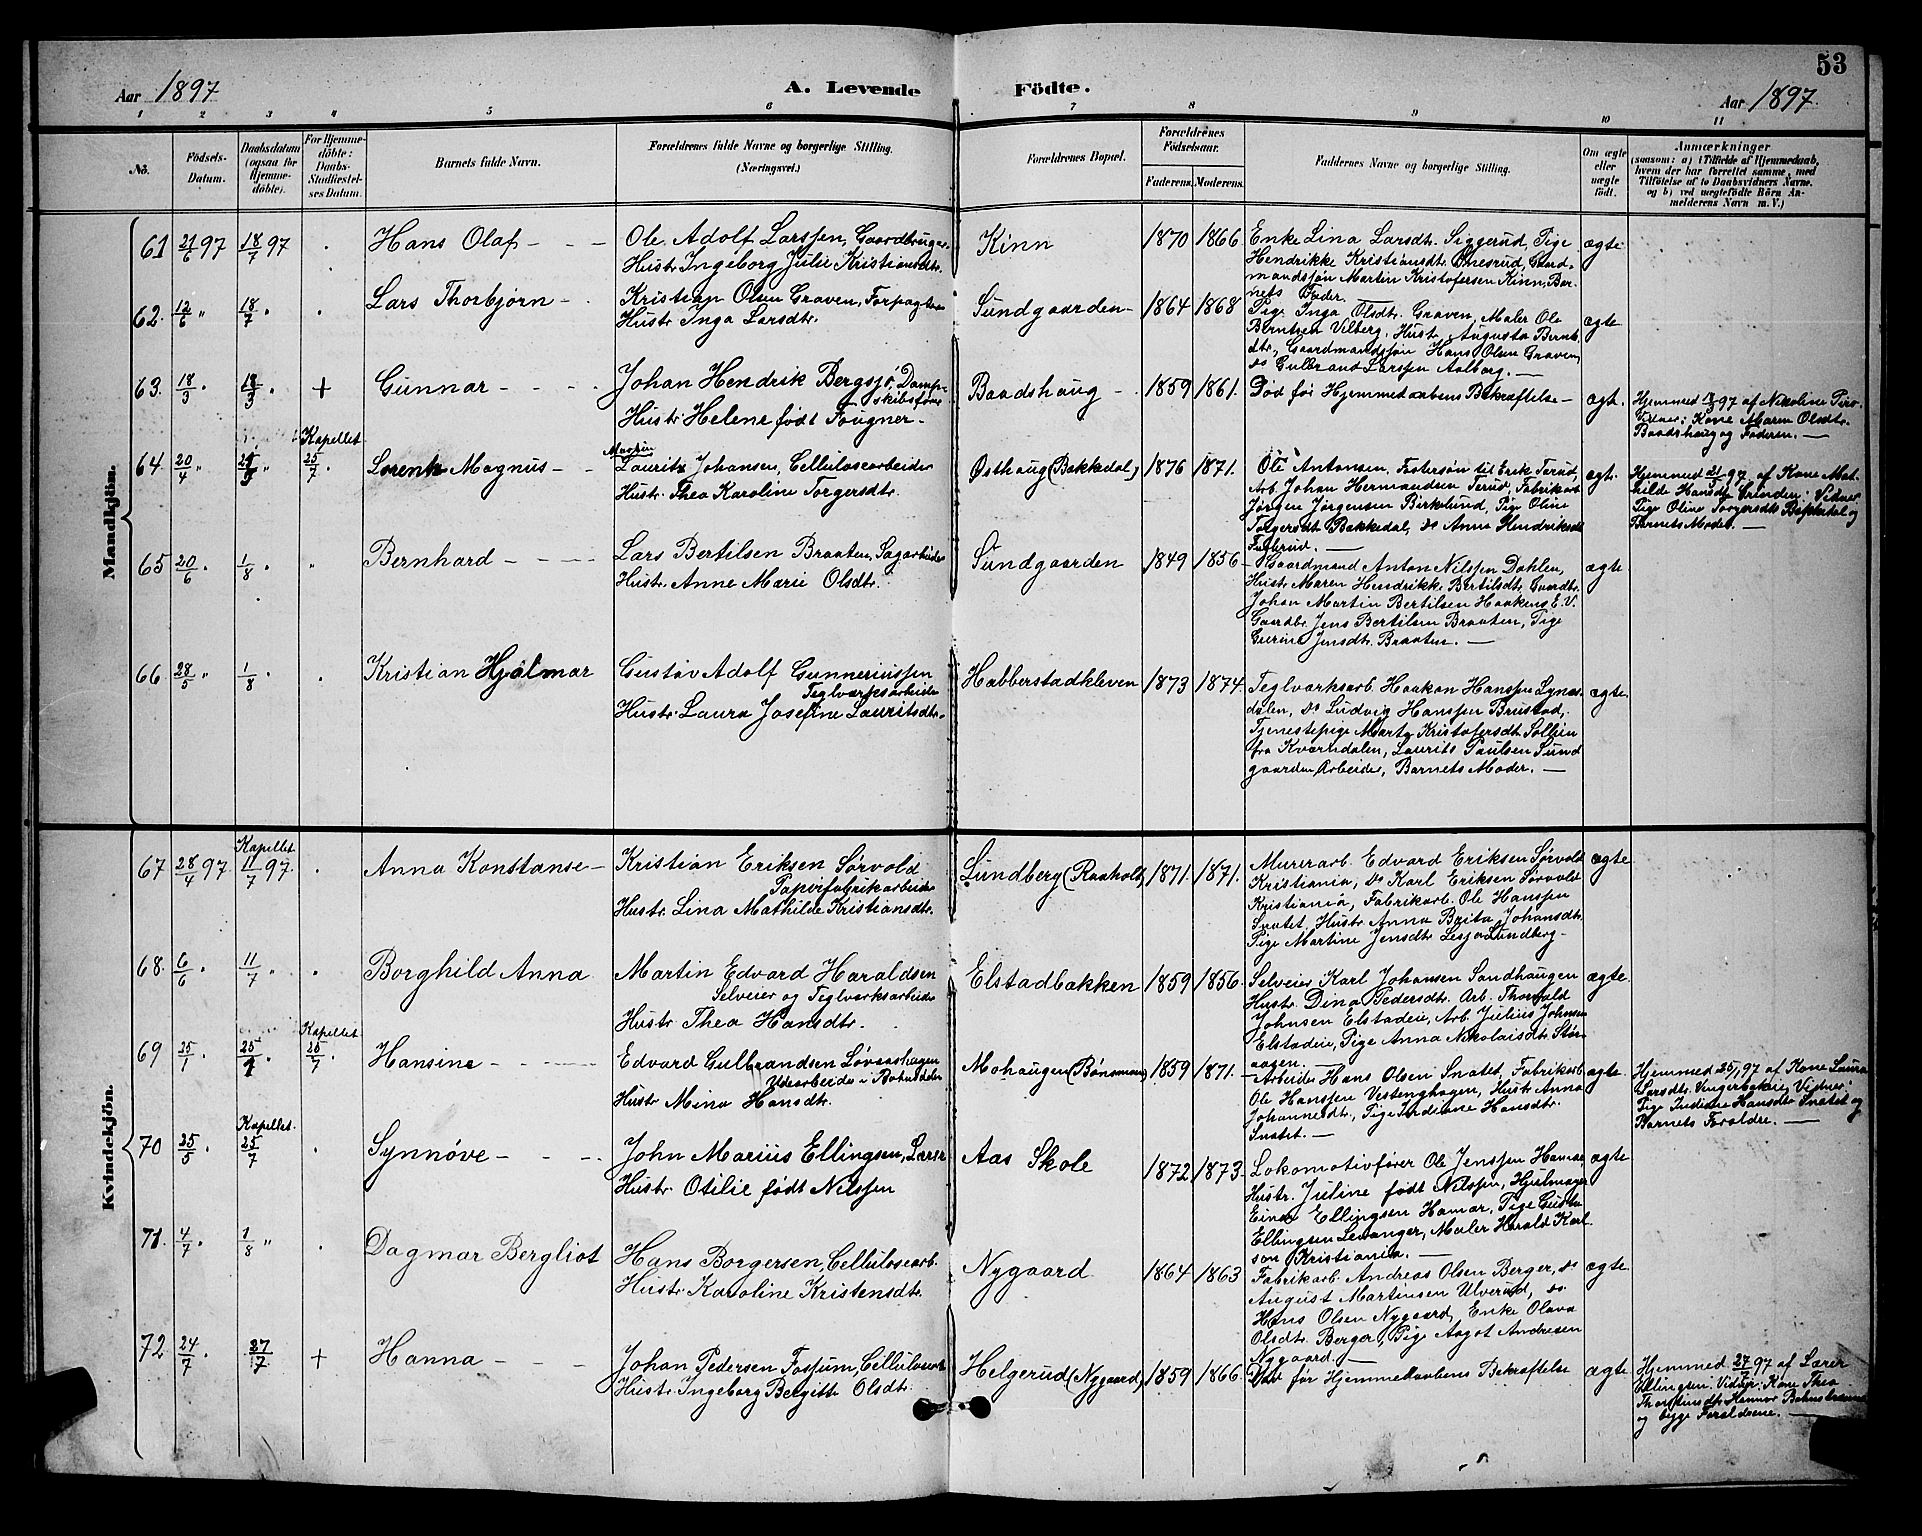 53
Aar 1897
A. Levende
Födte.
Aar 1897.
1 2 3 4 5 6 7 8 9 10 11
No.
Födsels-
Datum.
Daabsdatum
(ogsaa for
Hjemme-
döbte).
For Hjemme-
döbte:
Daabs-
Stadfæstel-
ses Datum.
Barnets fulde Navn.
Forældrenes fulde Navne og borgerlige Stilling.
(Næringsvei.)
Forældrenes Bopæl.
Forældrenes
Födselsaar.
Faderens. Moderens.
Faddernes Navne og borgerlige Stilling.
Om ægte
eller
uægte
födt.
Anmærkninger
(saasom: a) i Tilfælde af Hjemmedaab,
hvem der har forrettet samme, med
Tilföielse af to Daabsvidners Navne.
og b) ved uægtefödte Börn An-
melderens Navn m. V.)
Mandkjön.
61 21/6 97 18/7 97 . Hans Olaf - - -
Ole Adolf Larssen, Gaardbruger
Hustr. Ingeborg Julie Kristiansdtr.
Kinn
1870 1866
Enke Lina Larsdtr. Siggerud, Pige
Hendrikke Kristiansdtr. Onesrud, Gaard-
mandssøn Martin Kristofersen Kinn, Bar-
nets Fader.
ægte
62. 12/6 " 18/7 " . Lars Thorbjørn - .
Kristian Olsen Graven, Forpagter
Hustr. Inga Larsdtr.
Sundgaarden -
1864 1868
Pige Inga Olsdtr. Graven, Maler Ole
Berntsen Vilberg, Hustr. Augusta Bernh.
dtr., Gaardmandssøn Hans Olsen Graven,
do Gulbrand Larssen Aalborg. -
ægte
63. 18/3 " 18/3 " + Gunnar - - - -
Johan Hendrik Bergsjø, Damp-
skibsfører
Hustr. Helene født Fougner -
Baadshaug -
1859 1861.
Død før Hjemmedaabens Bekræftelse -
ægt.
Hjemmed 18/3 97 af Nikoline
Vidner: Kone Maren Olsdtr.
Baadshaug og Faderen. -
Kapellet
64. 20/4 " 25/7 " 25/7 . Lorentz Magnus - -
Martin
Lauritz Johansen, Cellulosearbeider
Hustr. Thea Karoline Torgersdtr.
Østhaug (Bakkedal)
1876 1871.
Ole Antonsen, Fostersøn til Erik Terud,
Arb. Johan Hermandsen Terud, Fabrikarb
Jørgen Jørgensen Birkelund, Pige Oline
Torgersdtr. Bakkedal, do Anna Hendriksd.
ægt.
Hjemmed 97 af Kone Mat-
hilde Hansdtr. Grinden: Vidner
Pige Oline Torgersdtr. Bakkedal og
Barnets Moder. -
65 20/6 " 1/8 " " Bernhard - - - -
Lars Bertilsen Braaten, Sagarbeider
Hustr. Anne Marie Olsdtr.
Sundgaarden
1849 1856
- Gaardmand Anton Nilssen Dahlen,
Hustr. Maren Hendrikke Bertilsdtr. Gaardbr.
Johan Martin Bertilsen Haakens E. V.
Gaardbr. Jens Bertilsen Braaten, Pige
Gurine Jensdtr. Braaten. -
ægte
66 28/5 " 1/8 " . Kristian Hjalmar
Gustav Adolf Gunneriussen
Teglværksarbeider
Hustr. Laura Josefine Lauritsdtr.
Habberstadkleven
1873 1874.
Teglværksarb. Haakon Hanssen Synes-
dalen, do Ludvig Hanssen Brustad,
Tjenestepige Marte Kristofersdtr. Sollien
fra Kværndalen, Laurits Paulsen Sund
gaarden Arbeider, Barnets Moder. -
ægte
Kvindekjön.
Kapellet
67 28/4 97 11/7 97 . Anna Konstanse -
Kristian Eriksen Sørvold
Papirfabrikarbeider
Hustr. Lina Mathilde Kristiansdtr.
Lundberg (Raaholt)
1871. 1871.
Murerarb. Edvard Eriksen Sørvold
Kristiania, do Karl Eriksen Sørvold
Kristiania, Fabrikarb. Ole Hanssen
Snatet, Hustr. Anna Brita Johansdtr.
Pige Martine Jensdtr. Lesja Lundberg -
ægte
68. 6/6 " 11/7 " . Borghild Anna
Martin Edvard Haraldsen
Selveier og Teglværksarbeider
Hustr. Thea Hansdtr.
Elstadbakken
1859 1856.
Selveier Karl Johansen Sandhaugen
Hustr. Dina Pedersdtr. Arb. Thorvald
Johnsen Elstadeie, Arb. Julius Johnsen
Elstadeie, Pige Anna Nikolaisdtr. Stør-
aasen.
ægte.
Kapellet
69 25/7 " 25/7 " 25/7 Hansine - - - -
Edvard Gulbrandsen Løvaashagen
Udearbeider i Bøhnsdalen
Hustr. Mina Hansdtr.
Mohaugen (Bønsmoen)
1859 1871.
- Arbeider Hans Olsen Snatet, Fabrikarb
Ole Hanssen Vestenghagen, Hustr. Anna
Johannesdtr., Pige Indiane Hansdtr.
Snatet. -
ægte
Hjemmed 25/7 97 af Kone Laura
Larsdtr. Vingerbakeie, Vidner:
Pige Indiane Hansdtr. Snatet og
Barnets Forældre. -
Kapellet.
70 25/5 " 25/7 . Synnøve - - - -
John Marius Ellingsen, Lærer
Hustr. Otilie født Nilssen
Aas Skole
1872 1873.
Lokomotivfører Ole Jenssen Hamar,
Hustr. Juline født Nilssen, Hjulmager
Einar Ellingsen Hamar, Pige
Ellingsen Levanger, Maler Harald Karl-
son Kristiania. -
ægte
71. 4/7 " 1/8 " . Dagmar Bergliot
Hans Borgersen, Cellulosearb.
Hustr. Karoline Kristensdtr.
Nygaard
1864 1863
Fabrikarb. Andreas Olsen Berger, do
August Martinsen Ulverud, do
Hans Olsen Nygaard, Enke Olava
Olsdtr. Berger, Pige Aagot Andresen
Nygaard. -
ægte
72 24/7 " 27/7 + Hanna - - - -
Johan Pedersen Fossum, Cellulosearb
Hustr. Ingeborg Bergitte Olsdtr.
Helgerud (Nygaard)
1859 1866.
Død før Hjemmedaabens Bekræftelse
ægte
Hjemmed. 27/7 97 af Lærer
Ellingsen. Vidner: Kone Thea
og begge Forældrene. -